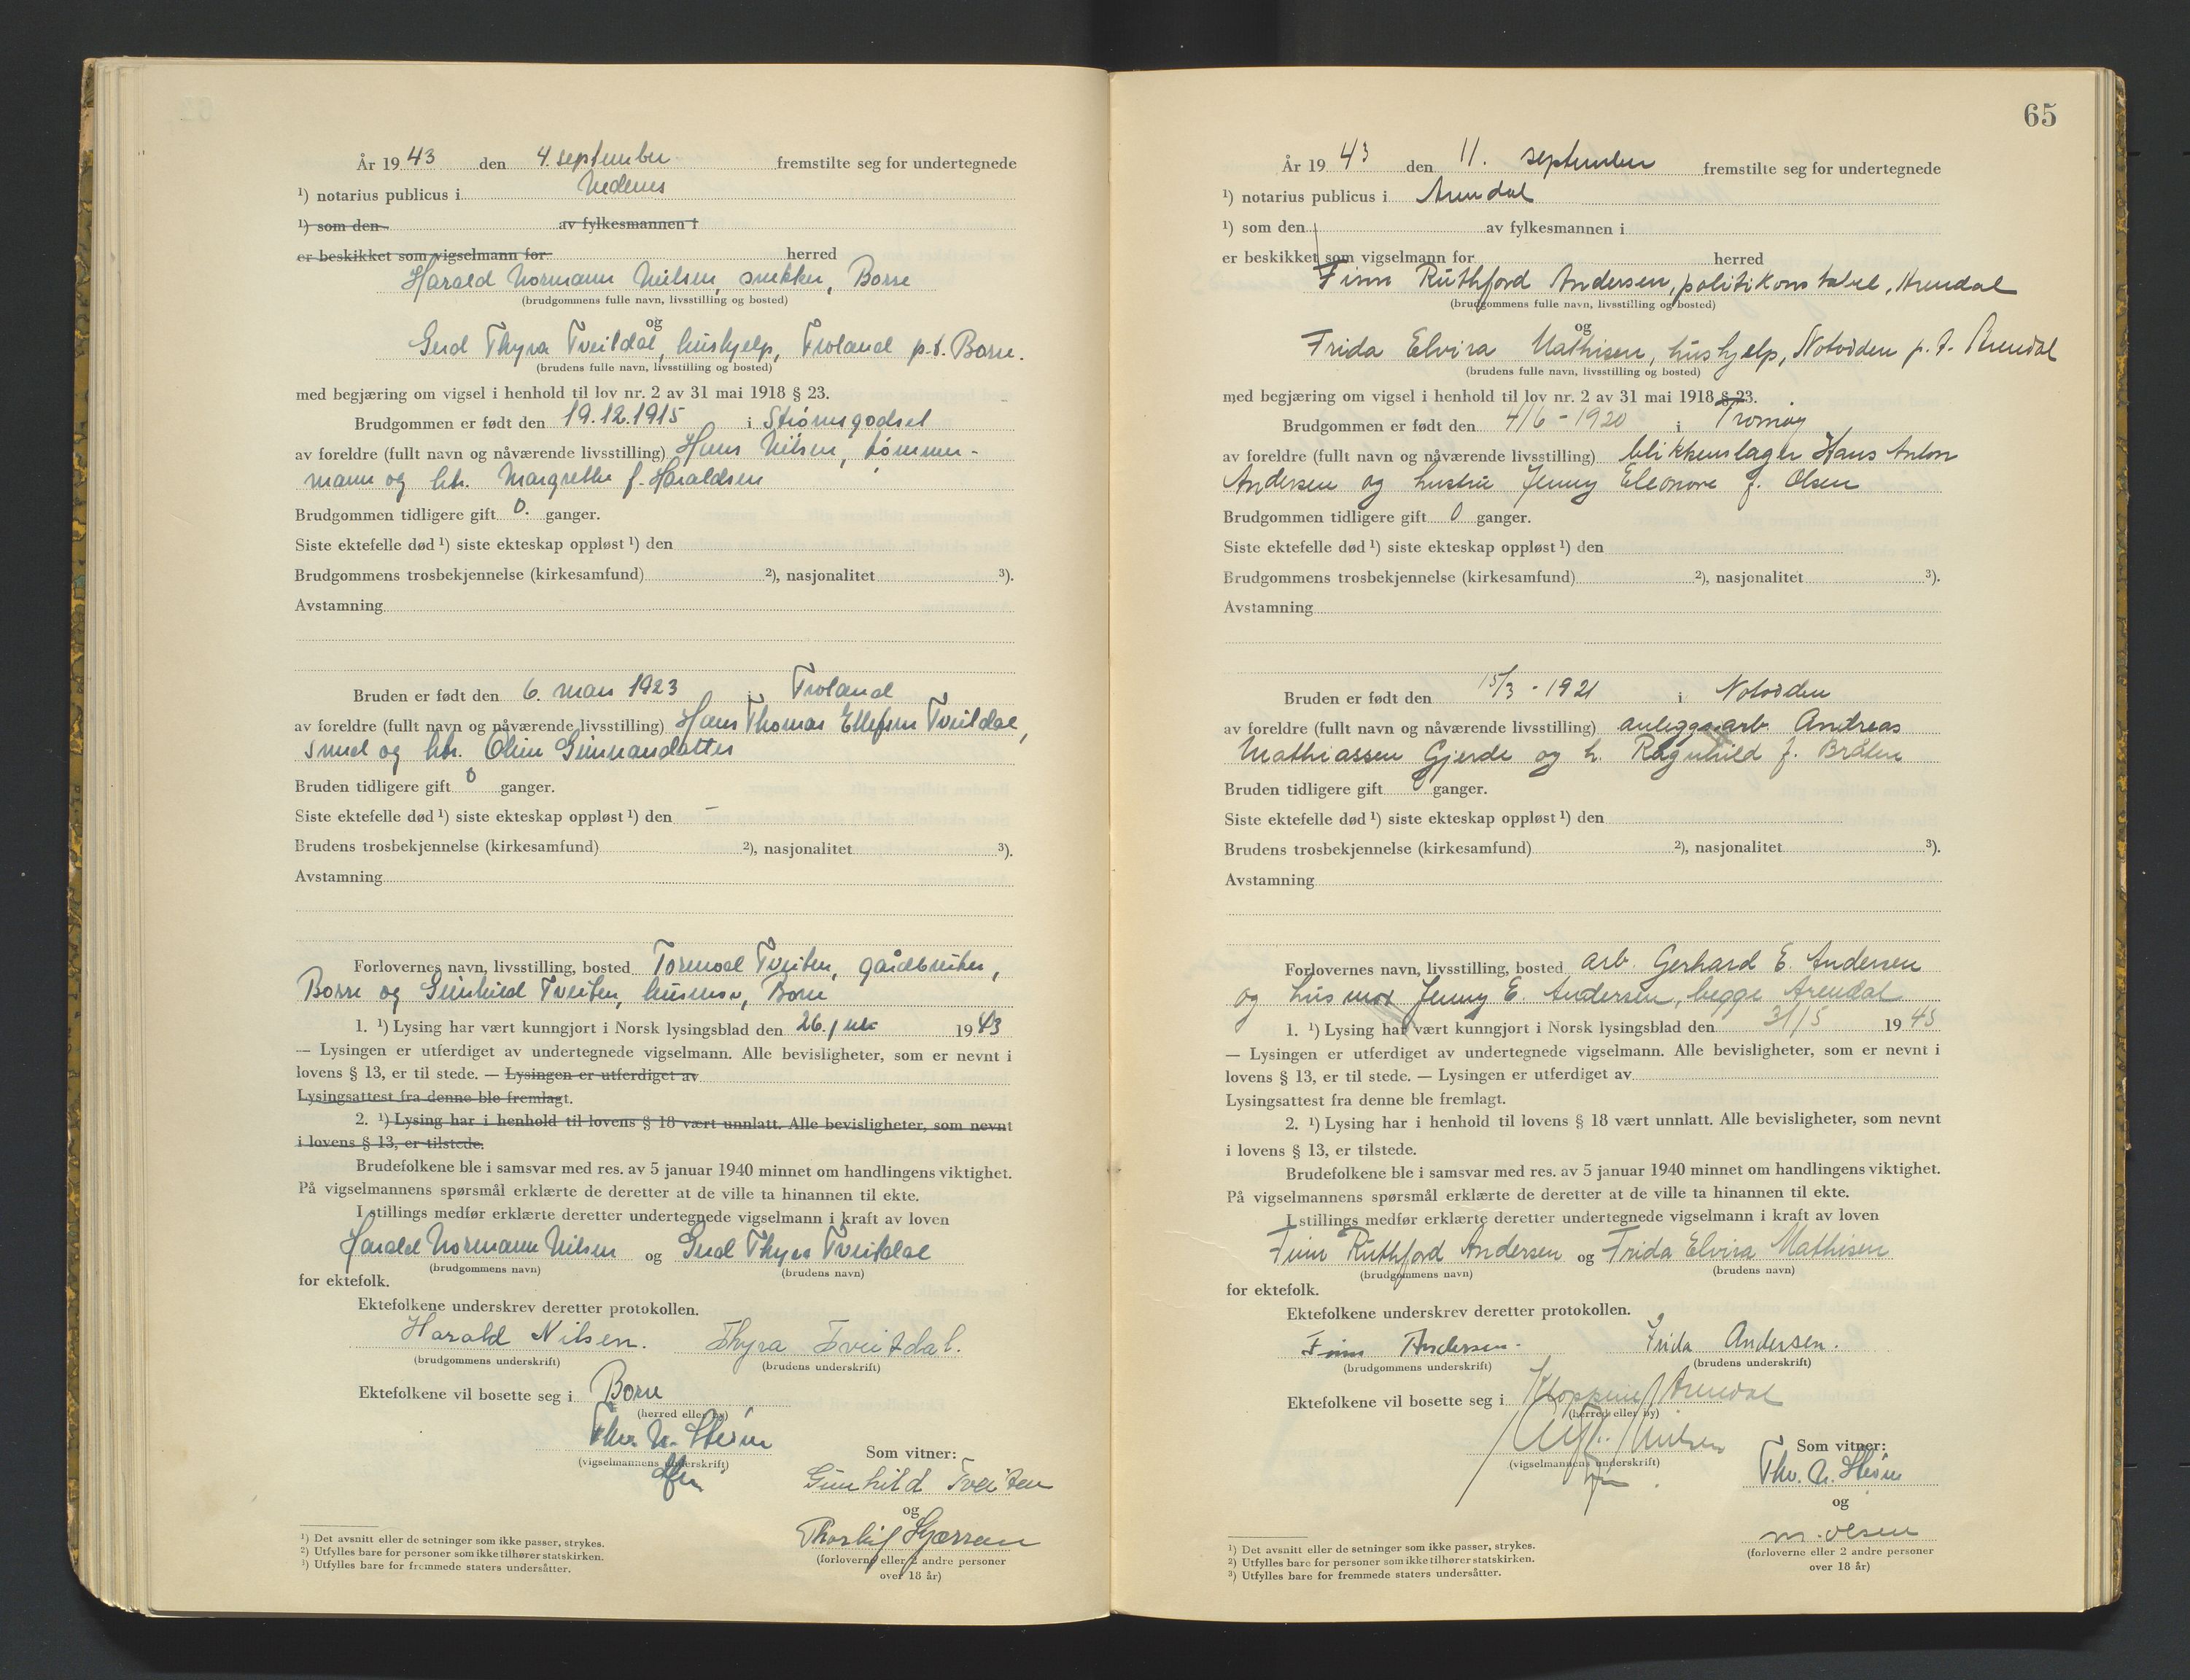 År 19 43 den 4. september fremstilte seg for undertegnede
¹) notarius publicus i Nedenes
¹) som den av fylkesmannen i
er beskikket som vigselmann for herred
Harald Normann Nilsen, snekker, Borre
(brudgommens fulle navn, livsstilling og bosted)
og
Gerd Thyra Tveitdal, hushjelp, Froland p.t. Borre.
(brudens fulle navn, livsstilling og bosted)
med begjæring om vigsel i henhold til lov nr. 2 av 31 mai 1918 § 23.
Brudgommen er født den 19.12.1915 i Strømsgodset
av foreldre (fullt navn og nåværende livsstilling) Hans Nilsen, tømmer-
mann og htr. Margrethe f. Haraldsen
Brudgommen tidligere gift 0. ganger.
Siste ektefelle død ¹) siste ekteskap oppløst ¹) den
Brudgommens trosbekjennelse (kirkesamfund) ²), nasjonalitet ³).
Avstamning
Bruden er født den 6. mars 1923 i Froland
av foreldre (fullt navn og nåværende livsstilling) Hans Thomas Ellefsen Tveitdal,
smed og htr. Gunnarsdatter
Bruden tidligere gift 0 ganger.
Siste ektefelle død ¹) siste ekteskap oppløst ¹) den –
Brudens trosbekjennelse (kirkesamfund) ²), nasjonalitet ³).
Avstamning
Forlovernes navn, livsstilling, bosted Tormod Tveiten, gårdbruker,
Borre og Gunhild Tveiten, husmor, Borre
1. ¹) Lysing har vært kunngjort i Norsk lysingsblad den 26. juli 19 43
— Lysingen er utferdiget av undertegnede vigselmann. Alle bevisligheter, som er nevnt i
lovens § 13, er til stede. — Lysingen er utferdiget av
Lysingsattest fra denne ble fremlagt.
2. ¹) Lysing har i henhold til lovens § 18 vært unnlatt. Alle bevisligheter, som nevnt
i lovens § 13, er tilstede.
Brudefolkene ble i samsvar med res. av 5 januar 1940 minnet om handlingens viktighet.
På vigselmannens spørsmål erklærte de deretter at de ville ta hinannen til ekte.
I stillings medfør erklærte deretter undertegnede vigselmann i kraft av loven
Harald Normann Nilsen og Gerd Thyra Tveitdal
(brudgommens navn) (brudens navn)
for ektefolk.
Ektefolkene underskrev deretter protokollen.
Harald Nilsen. Thyra Tveitdal.
(brudgommens underskrift) (brudens underskrift)
Ektefolkene vil bosette seg i Borre
(herred eller by)
Thv. N. Strøm
(vigselmannens underskrift)
Som vitner:
Gunhild Tveiten
og
(forloverne eller 2 andre personer
over 18 år)
¹) Det avsnitt eller de setninger som ikke passer, strykes.
²) Utfylles bare for personer som ikke tilhører statskirken.
³) Utfylles bare for fremmede staters undersåtter.
65
År 19 43 den 11. september fremstilte seg for undertegnede
¹) notarius publicus i Arendal
¹) som den av fylkesmannen i
er beskikket som vigselmann for herred
Finn Ruthford Andersen, politikonstabel, Arendal
(brudgommens fulle navn, livsstilling og bosted)
og
Frida Elvira Mathisen, hushjelp, Notodden p. t. Arendal
(brudens fulle navn, livsstilling og bosted)
med begjæring om vigsel i henhold til lov nr. 2 av 31 mai 1918 § 23.
Brudgommen er født den 4/6 - 1920 i Tromøy
av foreldre (fullt navn og nåværende livsstilling) blikkenslager Hans Anton
Andersen og hustru Jenny Eleonore f. Olsen
Brudgommen tidligere gift 0 ganger.
Siste ektefelle død ¹) siste ekteskap oppløst ¹) den
Brudgommens trosbekjennelse (kirkesamfund) ²), nasjonalitet ³).
Avstamning
Bruden er født den 15/3 - 1921 i Notodden
av foreldre (fullt navn og nåværende livsstilling) anleggsarb. Andreas
Mathiassen Gjerde og h. Ragnhild f. Bråten
Bruden tidligere gift 0 ganger.
Siste ektefelle død ¹) siste ekteskap oppløst ¹) den
Brudens trosbekjennelse (kirkesamfund) ²), nasjonalitet ³).
Avstamning
Forlovernes navn, livsstilling, bosted arb. Gerhard E. Andersen
og husmor Jenny E. Andersen, begge Arendal
1. ¹) Lysing har vært kunngjort i Norsk lysingsblad den 31/5 19 43
— Lysingen er utferdiget av undertegnede vigselmann. Alle bevisligheter, som er nevnt i
lovens § 13, er til stede. — Lysingen er utferdiget av
Lysingsattest fra denne ble fremlagt.
2. ¹) Lysing har i henhold til lovens § 18 vært unnlatt. Alle bevisligheter, som nevnt
i lovens § 13, er tilstede.
Brudefolkene ble i samsvar med res. av 5 januar 1940 minnet om handlingens viktighet.
På vigselmannens spørsmål erklærte de deretter at de ville ta hinannen til ekte.
I stillings medfør erklærte deretter undertegnede vigselmann i kraft av loven
Finn Ruthford Andersen og Frida Elvira Mathisen
(brudgommens navn) (brudens navn)
for ektefolk.
Ektefolkene underskrev deretter protokollen.
Finn Andersen. Frida Andersen.
(brudgommens underskrift) (brudens underskrift)
Ektefolkene vil bosette seg i Kloppene / Arendal
(herred eller by)
Nielsen
(vigselmannens underskrift)
Som vitner:
Thv. N. Strøm
og
M. Olsen
(forloverne eller 2 andre personer
over 18 år)
¹) Det avsnitt eller de setninger som ikke passer, strykes.
²) Utfylles bare for personer som ikke tilhører statskirken.
³) Utfylles bare for fremmede staters undersåtter.